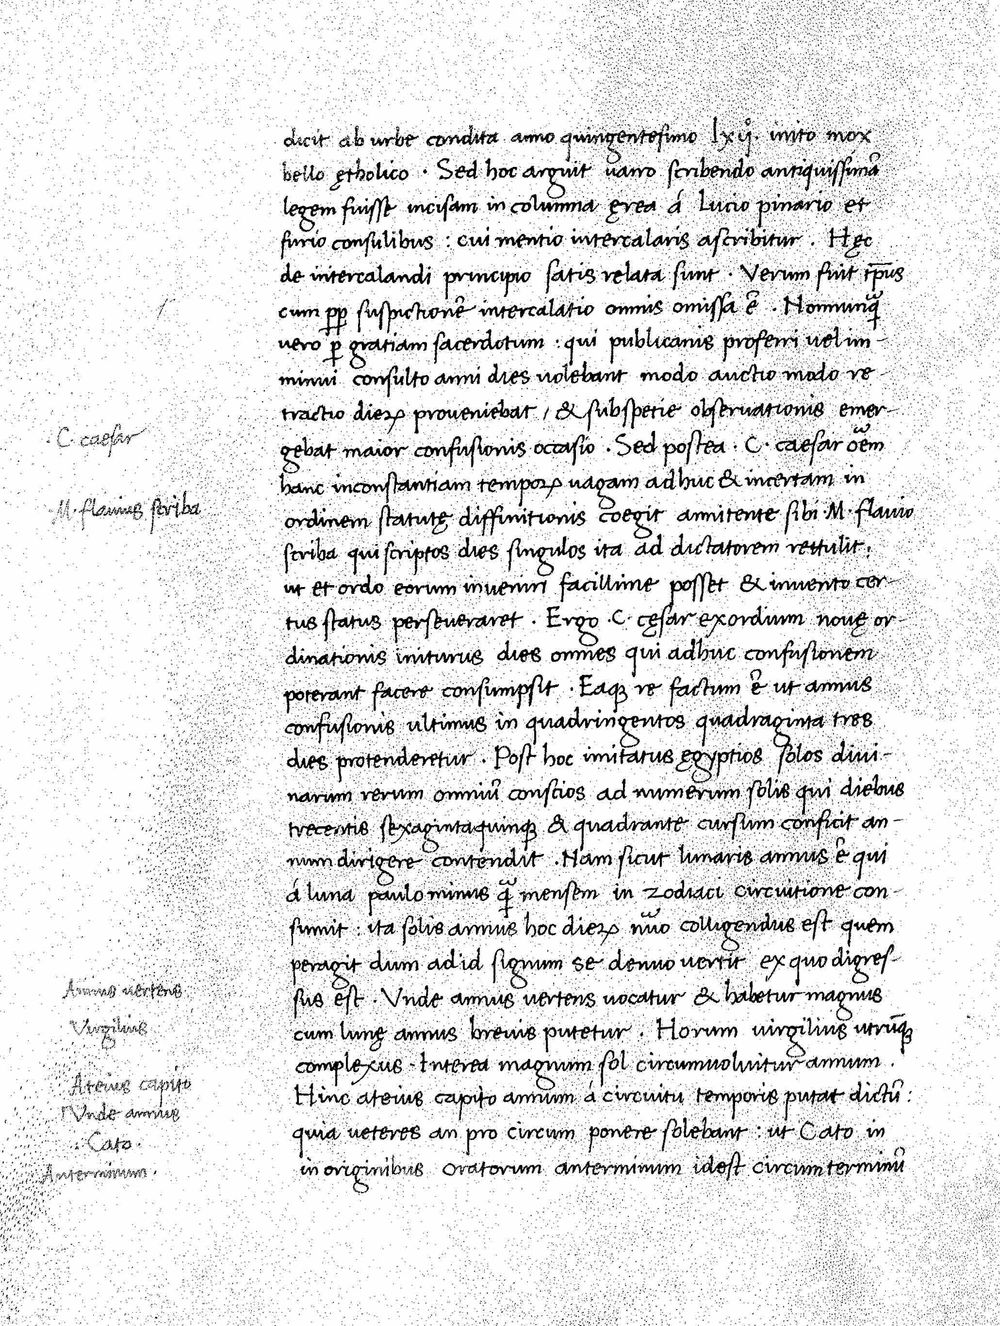 dicit ab urbe condita anno quingentesimo lxij. inito mox
bello ętholico · Sed hoc arguit uarro scribendo antiquissimā
legem fuisse incisam in columna ęrea á Lucio pinario et
furio consulibus : cui mentio intercalaris ascribitur . Hęc
de intercalandi principio satis relata sunt · Verum fuit tp̄us
cum pp̱ suspictionē intercalatio omnis omissa ē . Nonnunq̃
uero ꝑ gratiam sacerdotum : qui publicanis proferri uel im-
minui consulto anni dies uolebant modo auctio modo re-
tractio dieꝝ proueniebat / & sub specie obseruationis emer-
gebat maior confusionis occasio . Sed postea · C · caesar oēm
hanc inconstantiam tempoꝝ uagam adhuc & incertam in
ordinem statutę diffinitionis coegit annitente sibi · M · flauio
scriba qui scriptos dies singulos ita ad dictatorem rettulit,
ut et ordo eorum inueniri facillime posset & inuento cer-
tus status perseueraret . Ergo · C · cęsar exordium nouę or-
dinationis initurus dies omnes qui adhuc confusionem
poterant facere consumpsit . Eaqꝫ re factum ē ut annus
confusionis ultimus in quadringentos quadraginta tres
dies protenderetur . Post hoc imitatus ęgyptios solos diui-
narum rerum omniū conscios ad numerum solis qui diebus
trecentis sexagintaquinqꝫ & quadrante cursum conficit an-
num dirigere contendit . Nam sicut lunaris annus ē qui
á luna paulo minus q̃ mensem in zodiaci circuitione con-
sumit : ita solis annus hoc dieꝝ nũo colligendus est quem
peragit dum ad id signum se denuo uertit ex quo digres-
sus est . Vnde annus uertens uocatur & habetur magnus
cum lunę annus breuis putetur . Horum uirgilius utrūqꝫ
complexus · Interea magnum sol circumuoluitur annum .
Hinc ateius capito annum á circuitu temporis putat dictū :
quia ueteres an pro circum ponere solebant : ut Cato in
in originibus oratorum anterminum idest circum terminū
· C · caesar
· M · flauius scriba
Annus uertens
Virgilius
Ateius capito
Vnde annus
· Cato ·
Anterminum ·